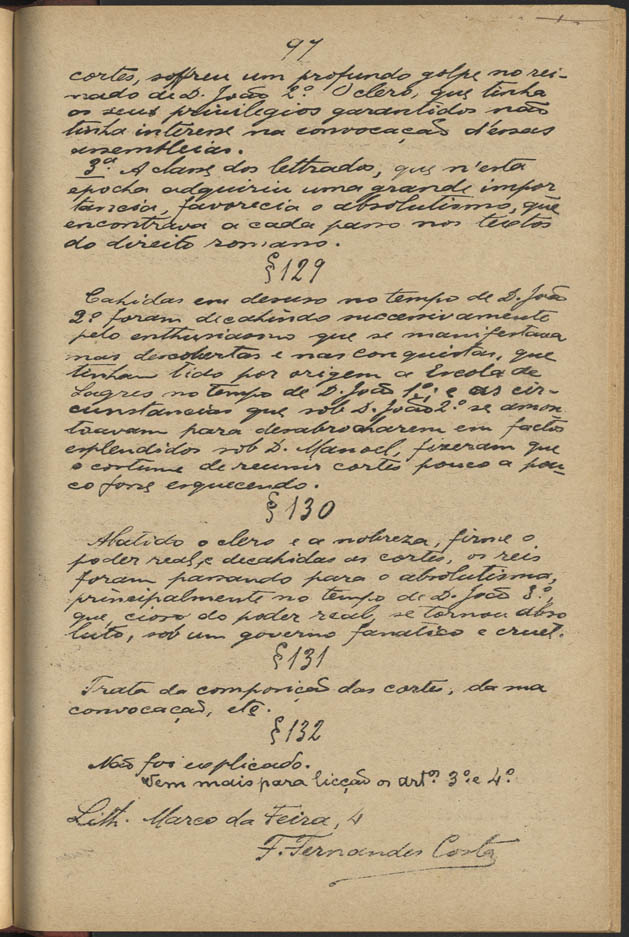 97
cortes, soffreu um profundo golpe no rei-
nado de D. João 2º. O clero, que tinha
os seus privilegios garantidos não
tinha interesse na convocação d'essas
assembleias.
3ª. A classe dos lettrados, que n'esta
epocha adquiriu uma grande impor
tancia, favorecia o absolutismo, que
encontrava a cada passo nos textos
do direito romano.
§ 129
Cahidas em desuso no tempo de D. João
2º foram decahindo successivamente
pelo enthusiasmo que se manifestava
nas descobertas e nas conquistas, que
tinham tido por origem a Escola de
Sagres no tempo de D. João 1º; e as cir-
cunstancias que sob D. João 2º se amon
toavam para desabrocharem em factos
esplendidos sob D. Manoel, fizeram que
o costume de reunir cortes pouco a pou-
co fosse esquecendo.
§ 130
Abatido o clero e a nobreza, firme o
poder real, e decahidas as cortes, os reis
foram passando para o absolutismo,
principalmente no tempo de D. João 3º,
que, cioso do poder real, se tornou abso
luto, sob um governo fanatico e cruel.
§ 131
Trata da composição das cortes, da sua
convocação, etc.
§ 132
Não foi explicado.
Vem mais para licção os artºs 3º e 4º.
Lith. Marco da Feira, 4
F. Fernandes Costa